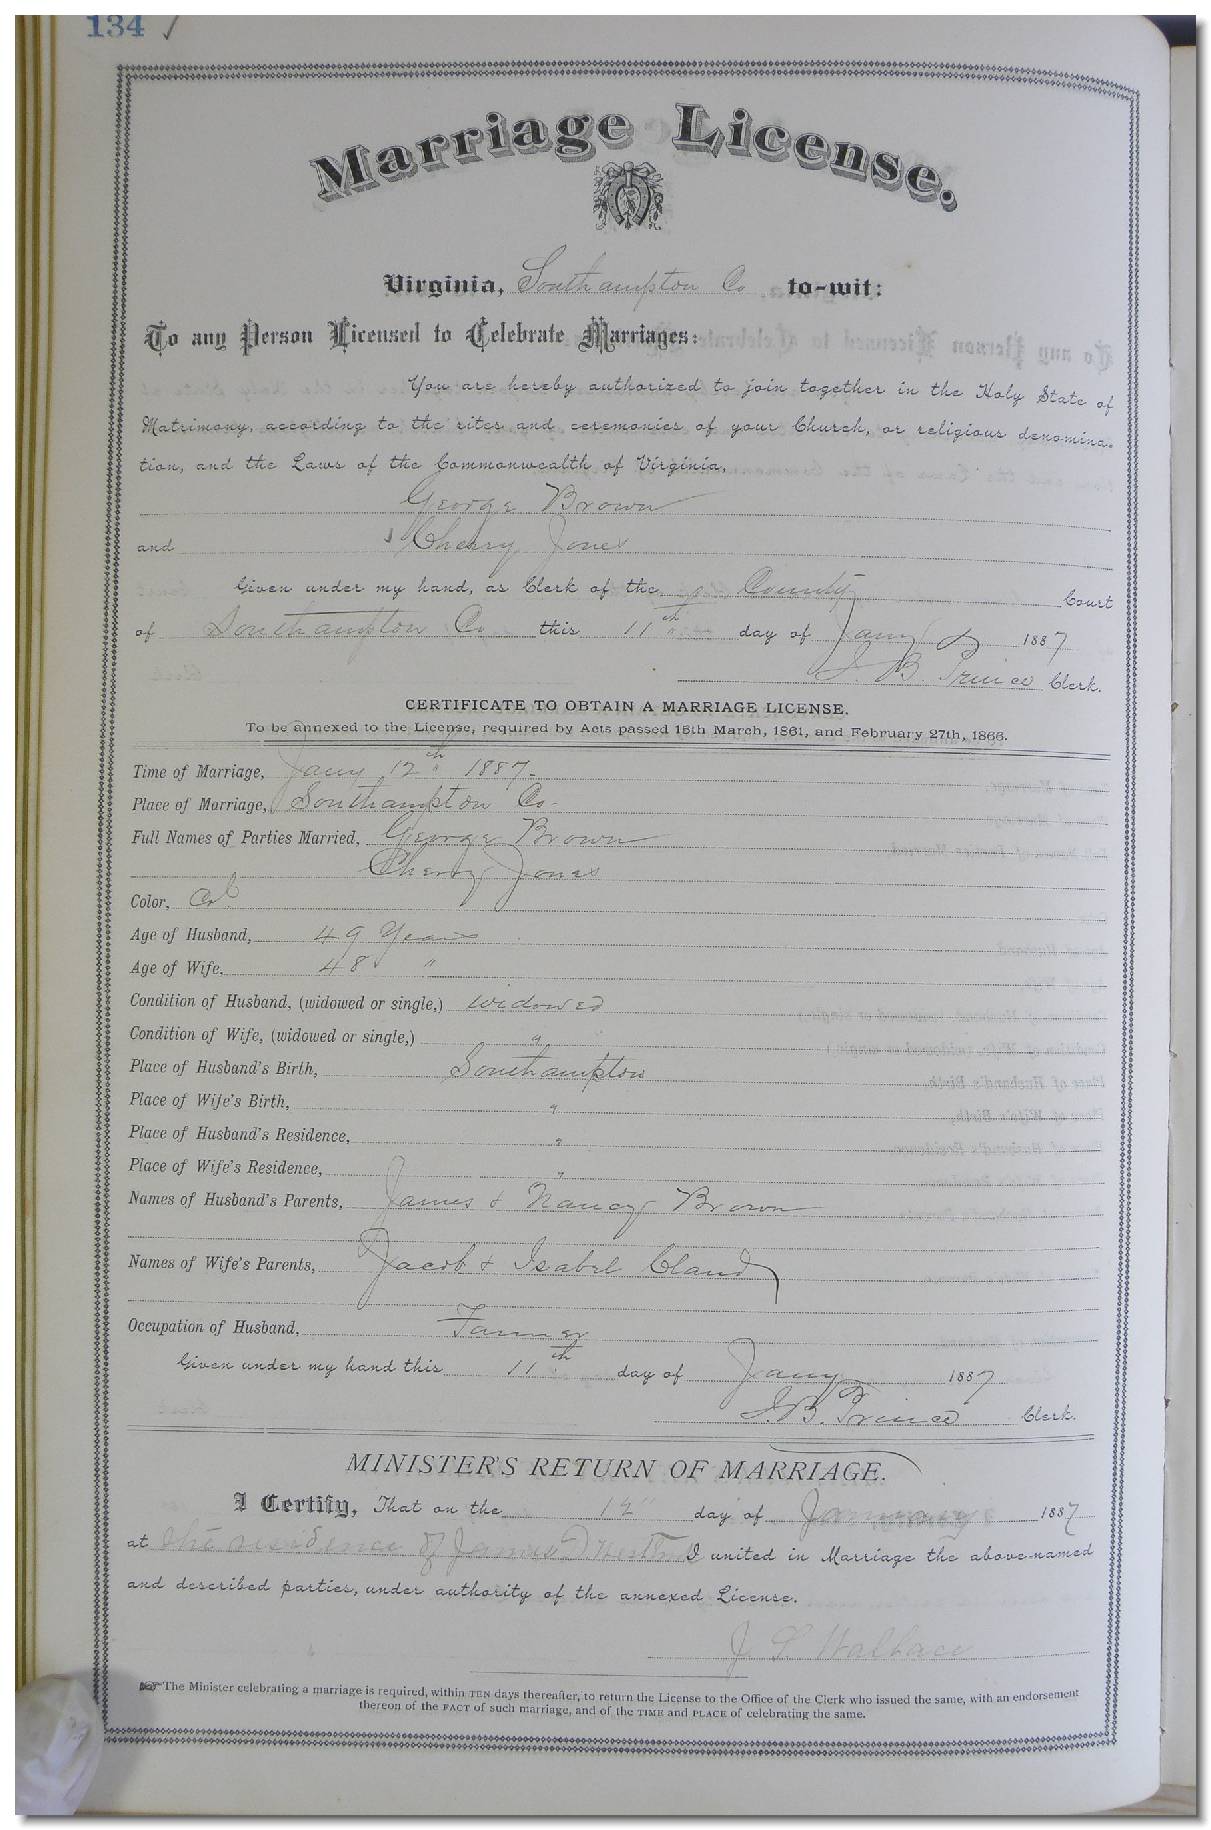 134 ✓
Marriage License.
Virginia, Southampton Co to-wit:
To any Person Licensed to Celebrate Marriages:
You are hereby authorized to join together in the Holy State of
Matrimony, according to the rites and ceremonies of your Church, or religious denomina-
tion, and the Laws of the Commonwealth of Virginia,
George Brown
and Cherry Jones
Given under my hand, as Clerk of the County Court
of Southampton Co this 11th day of Jany 1887
J. B. Prince Clerk.
CERTIFICATE TO OBTAIN A MARRIAGE LICENSE.
To be annexed to the License, required by Acts passed 15th March, 1861, and February 27th, 1866.
Time of Marriage, Jany 12th 1887-
Place of Marriage, Southampton Co-
Full Names of Parties Married, George Brown
Cherry Jones
Color, Col
Age of Husband, 49 Years
Age of Wife, 48 "
Condition of Husband, (widowed or single,) widowed
Condition of Wife, (widowed or single,) "
Place of Husband's Birth, Southampton
Place of Wife's Birth, "
Place of Husband's Residence, "
Place of Wife's Residence, "
Names of Husband's Parents, James & Nancy Brown
Names of Wife's Parents, Jacob & Isabel Claud
Occupation of Husband, Farmer
Given under my hand this 11th day of Jany 1887
J. B. Prince Clerk.
MINISTER'S RETURN OF MARRIAGE.
I Certify, That on the 12" day of January 1887
at the residence of James I united in Marriage the above-named
and described parties, under authority of the annexed License.
J. S. Wallace
The Minister celebrating a marriage is required, within TEN days thereafter, to return the License to the Office of the Clerk who issued the same, with an endorsement
thereon of the FACT of such marriage, and of the TIME and PLACE of celebrating the same.